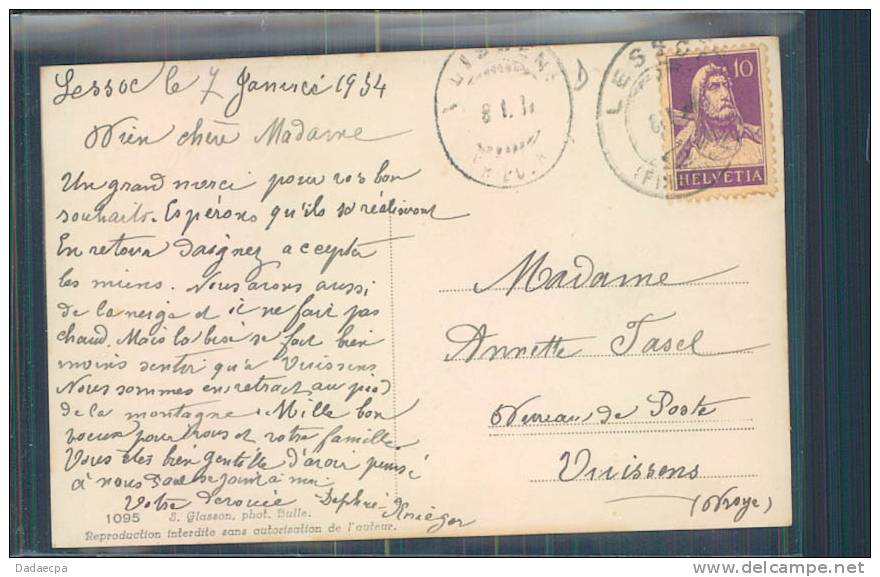 Lessoc le 7 Janvié 1934
Bien chère Madame
Un grand merci pour vos bon
souhaits. Espérons qu'ils se réaliseront
En retour daignez accepter
les miens. Nous avons aussi
de la neige et il ne fait pas
chaud. Mais la bise se fait bien
moins sentir qu'à Vuissens
Nous sommes en retrait au pied
de la montagne. Mille bon
voeux pour vous et votre famille.
Vous êtes bien gentille d'avoir pensé
à nous
Votre devouée
1095 S. Glasson, phot. Bulle.
Reproduction interdite sans autorisation de l'auteur.
LESSOC
8.1.
10
HELVETIA
Madame
Annette Fasel
Bureau de Poste
Vuissens
(Broye)
Dadaecpa
www.delcampe.net